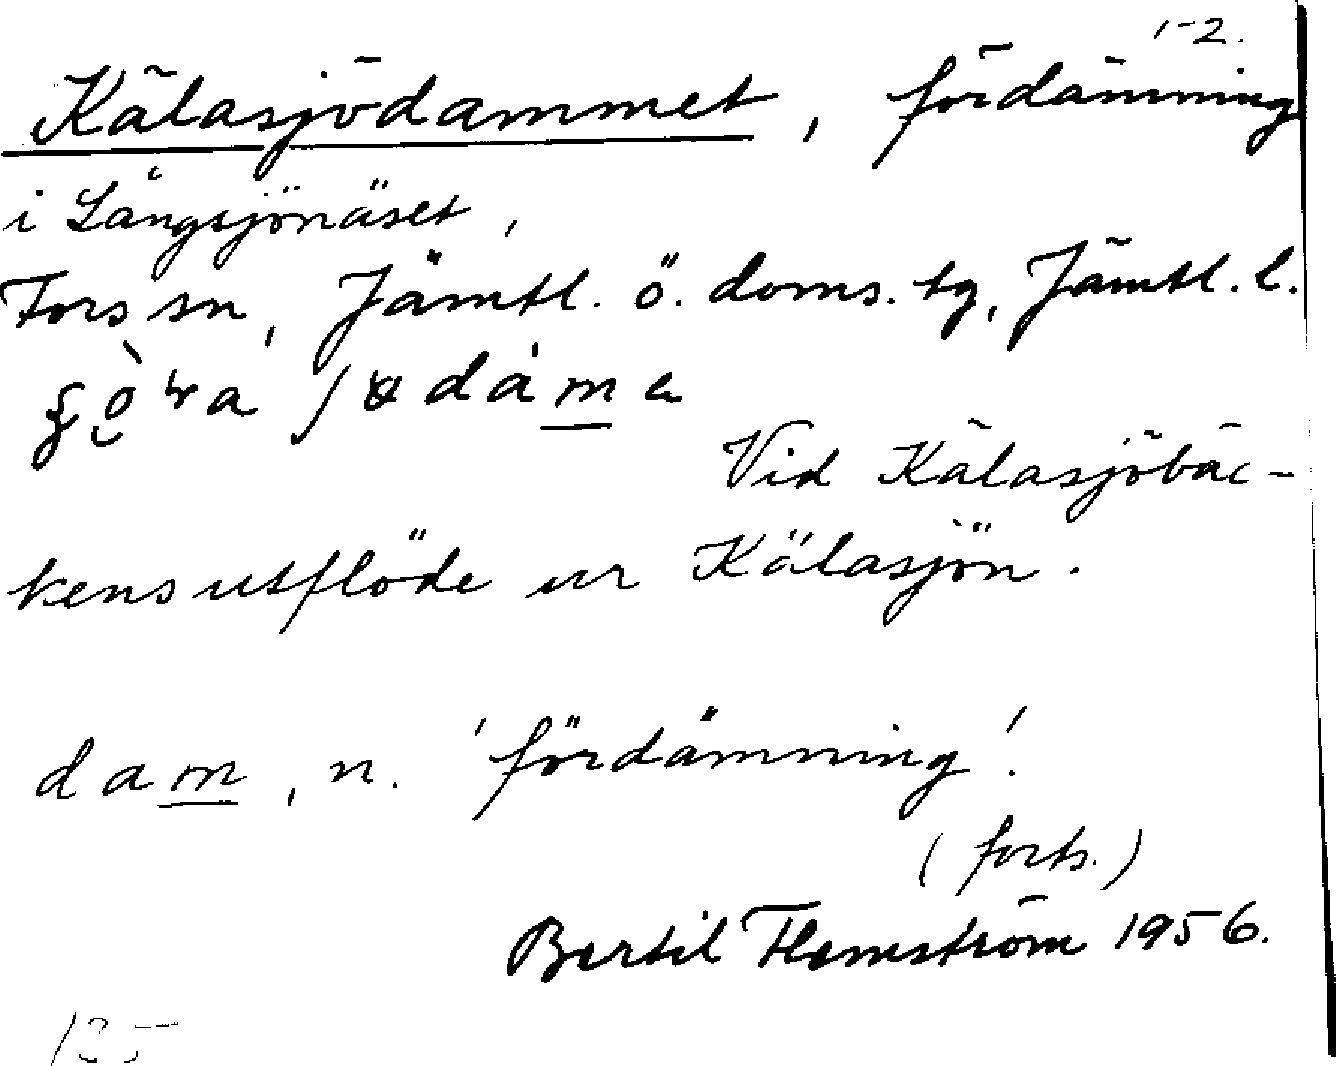 1-2.
Kälasjödammet, fördämning
i Långsjönäset,
Fors sn, Jämtl. ö. doms. tg, Jämtl. l.
Vid Kälasjöbäc-
kens utflöde ur Kälasjön.
dam, n. 'fördämning'.
(forts.)
Bertil Flemström 1956.
135